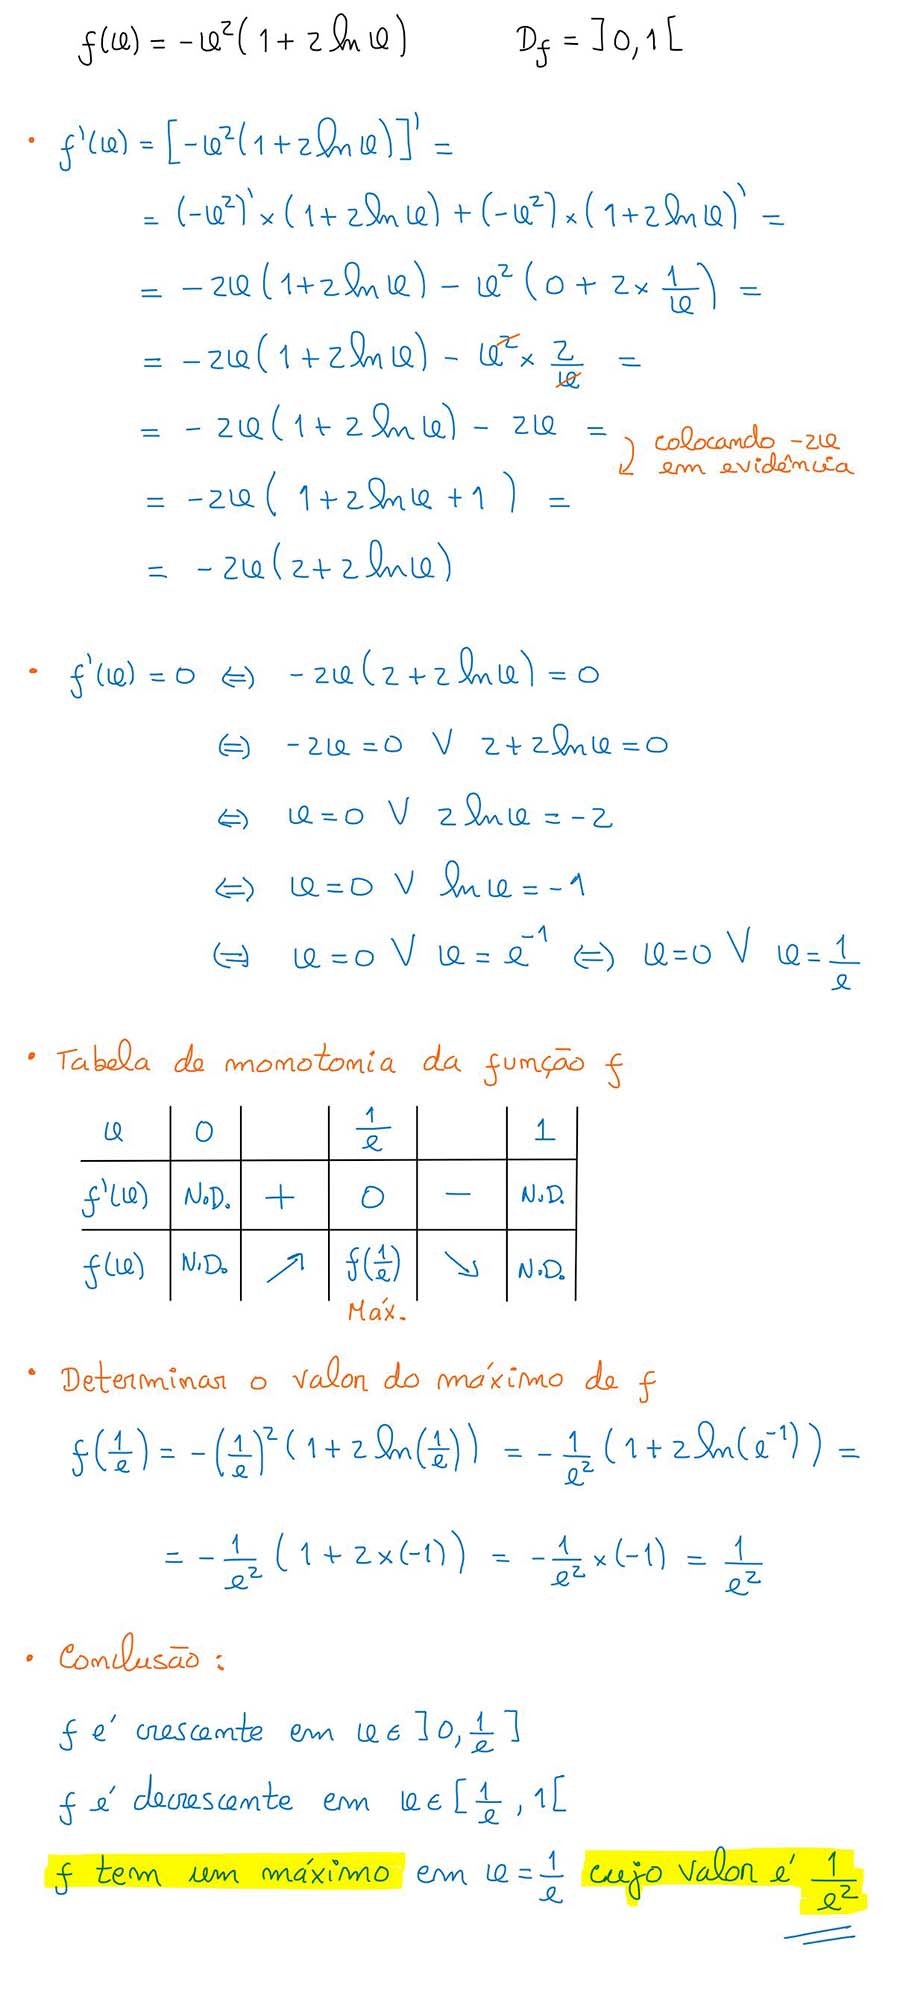 f(x) = -x²(1 + 2 ln x)    D_f = ]0,1[
• f'(x) = [-x²(1+2 ln x)]' =
= (-x²)' × (1+2 ln x) + (-x²) × (1+2 ln x)' =
= -2x(1+2 ln x) - x²(0 + 2 × 1/x) =
= -2x(1+2 ln x) - x² × 2/x =
= -2x(1+2 ln x) - 2x =
colocando -2x
em evidência
= -2x(1+2 ln x + 1) =
= -2x(2+2 ln x)
• f'(x) = 0 ⇔ -2x(2+2 ln x) = 0
⇔ -2x = 0 ∨ 2+2 ln x = 0
⇔ x = 0 ∨ 2 ln x = -2
⇔ x = 0 ∨ ln x = -1
⇔ x = 0 ∨ x = e⁻¹ ⇔ x = 0 ∨ x = 1/e
• Tabela de monotonia da função f
x 0 1/e 1
f'(x) N.D. + 0 - N.D.
f(x) N.D. ↗ f(1/e) ↘ N.D.
Máx.
• Determinar o valor do máximo de f
f(1/e) = -(1/e)²(1+2 ln(1/e)) = -1/e² (1+2 ln(e⁻¹)) =
= -1/e² (1+2×(-1)) = -1/e² × (-1) = 1/e²
• Conclusão:
f é crescente em x ∈ ]0, 1/e]
f é decrescente em x ∈ [1/e, 1[
f tem um máximo em x = 1/e cujo valor é 1/e²